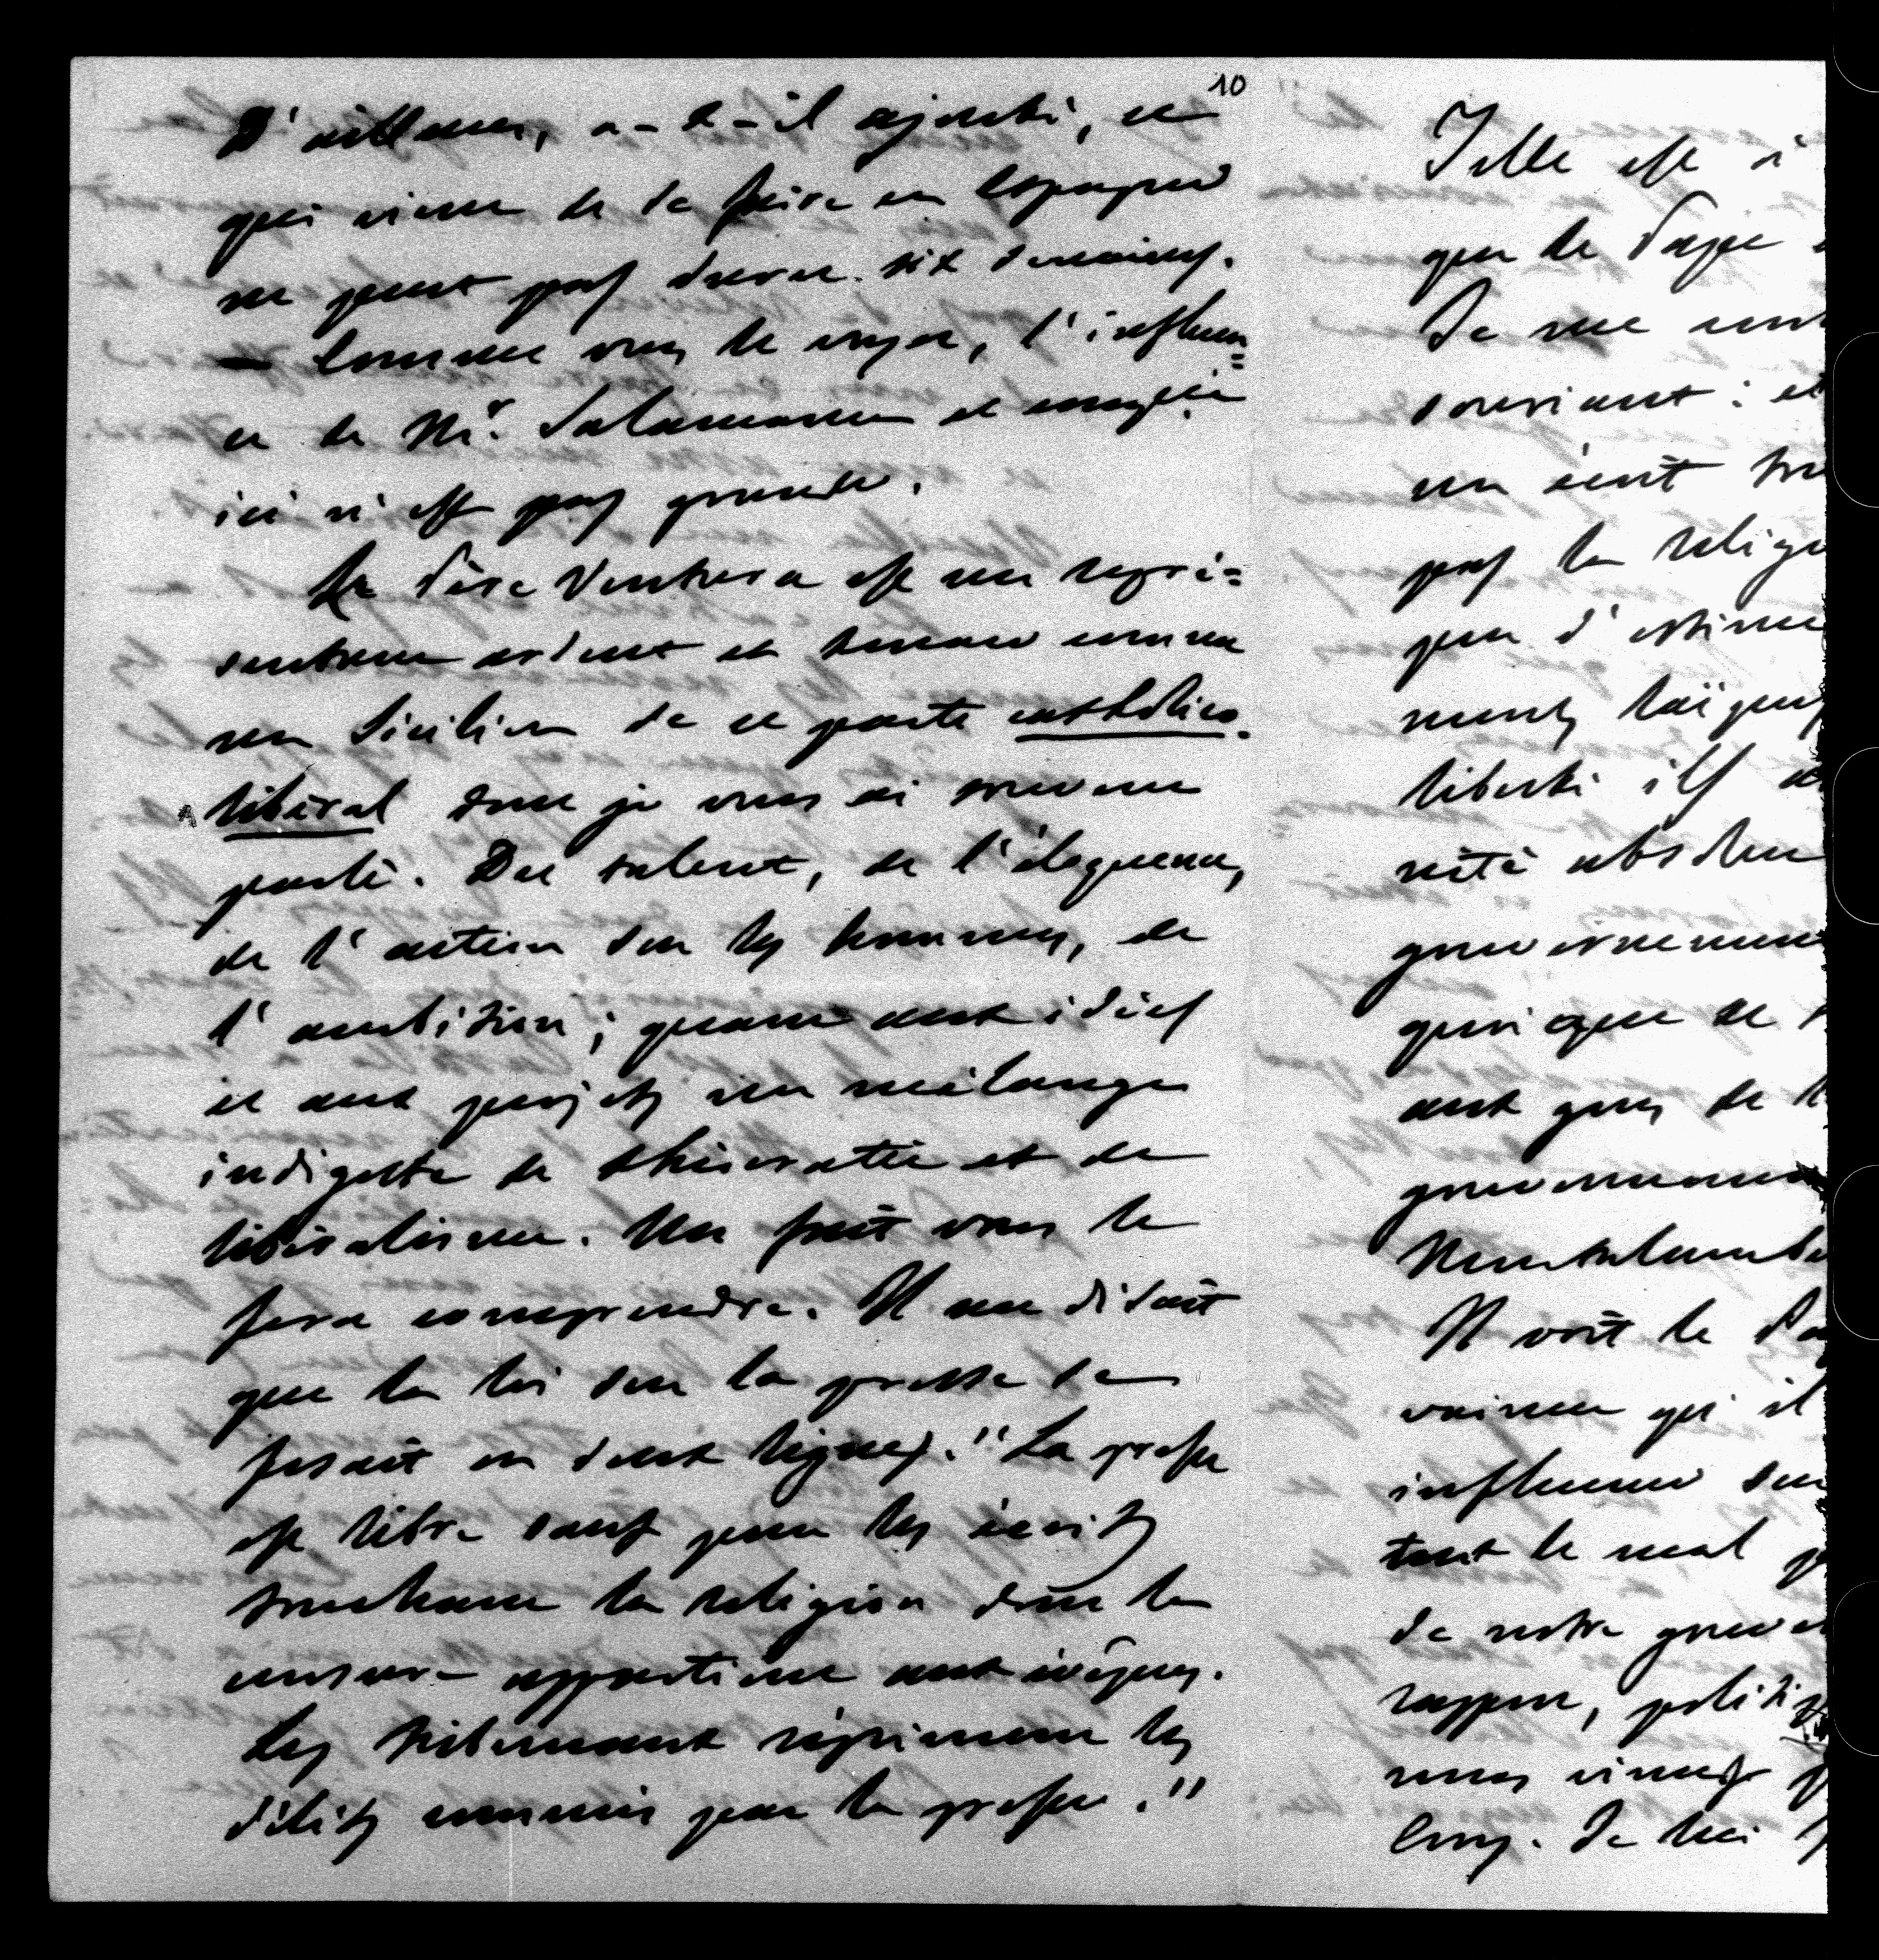 10
D'ailleurs, a-t-il ajouté, ce
qui vient de se faire en Espagne
ne peut pas durer six semaines.
— Comme vous le voyez, l'influen=
ce de Mr. Salamanca et compie
ici n'est pas grande.
Le Père Ventura est un repré=
sentant ardent et tenace comme
un Sicilien de ce parti catholico-
libéral dont je vous ai souvent
parlé. Du talent, de l'éloquence,
de l'action sur les hommes, de
l'ambition; quant aux idées
et aux projets un mélange
indigeste de théocratie et de
libéralisme. Un fait vous le
fera comprendre. Il me disait
que la loi sur la presse se
fesait en deux lignes. "La presse
est libre sauf pour les écrits
touchant la religion dont la
censure appartient aux évêques.
Les tribunaux répriment les
délits commis par la presse."
Telle est
que le Pape
Je me
souriant: et
un écrit
pas la relig
peu d'estime
ments laïques
liberté ils
rité absolue
gouvernement
quoique ce
aux yeux de
gouvernement
Montalembe
Il voit le
vaincu qu'il
influence sur
tout le mal
de notre gouve
rapport, politi
nous vient
long. Je lui